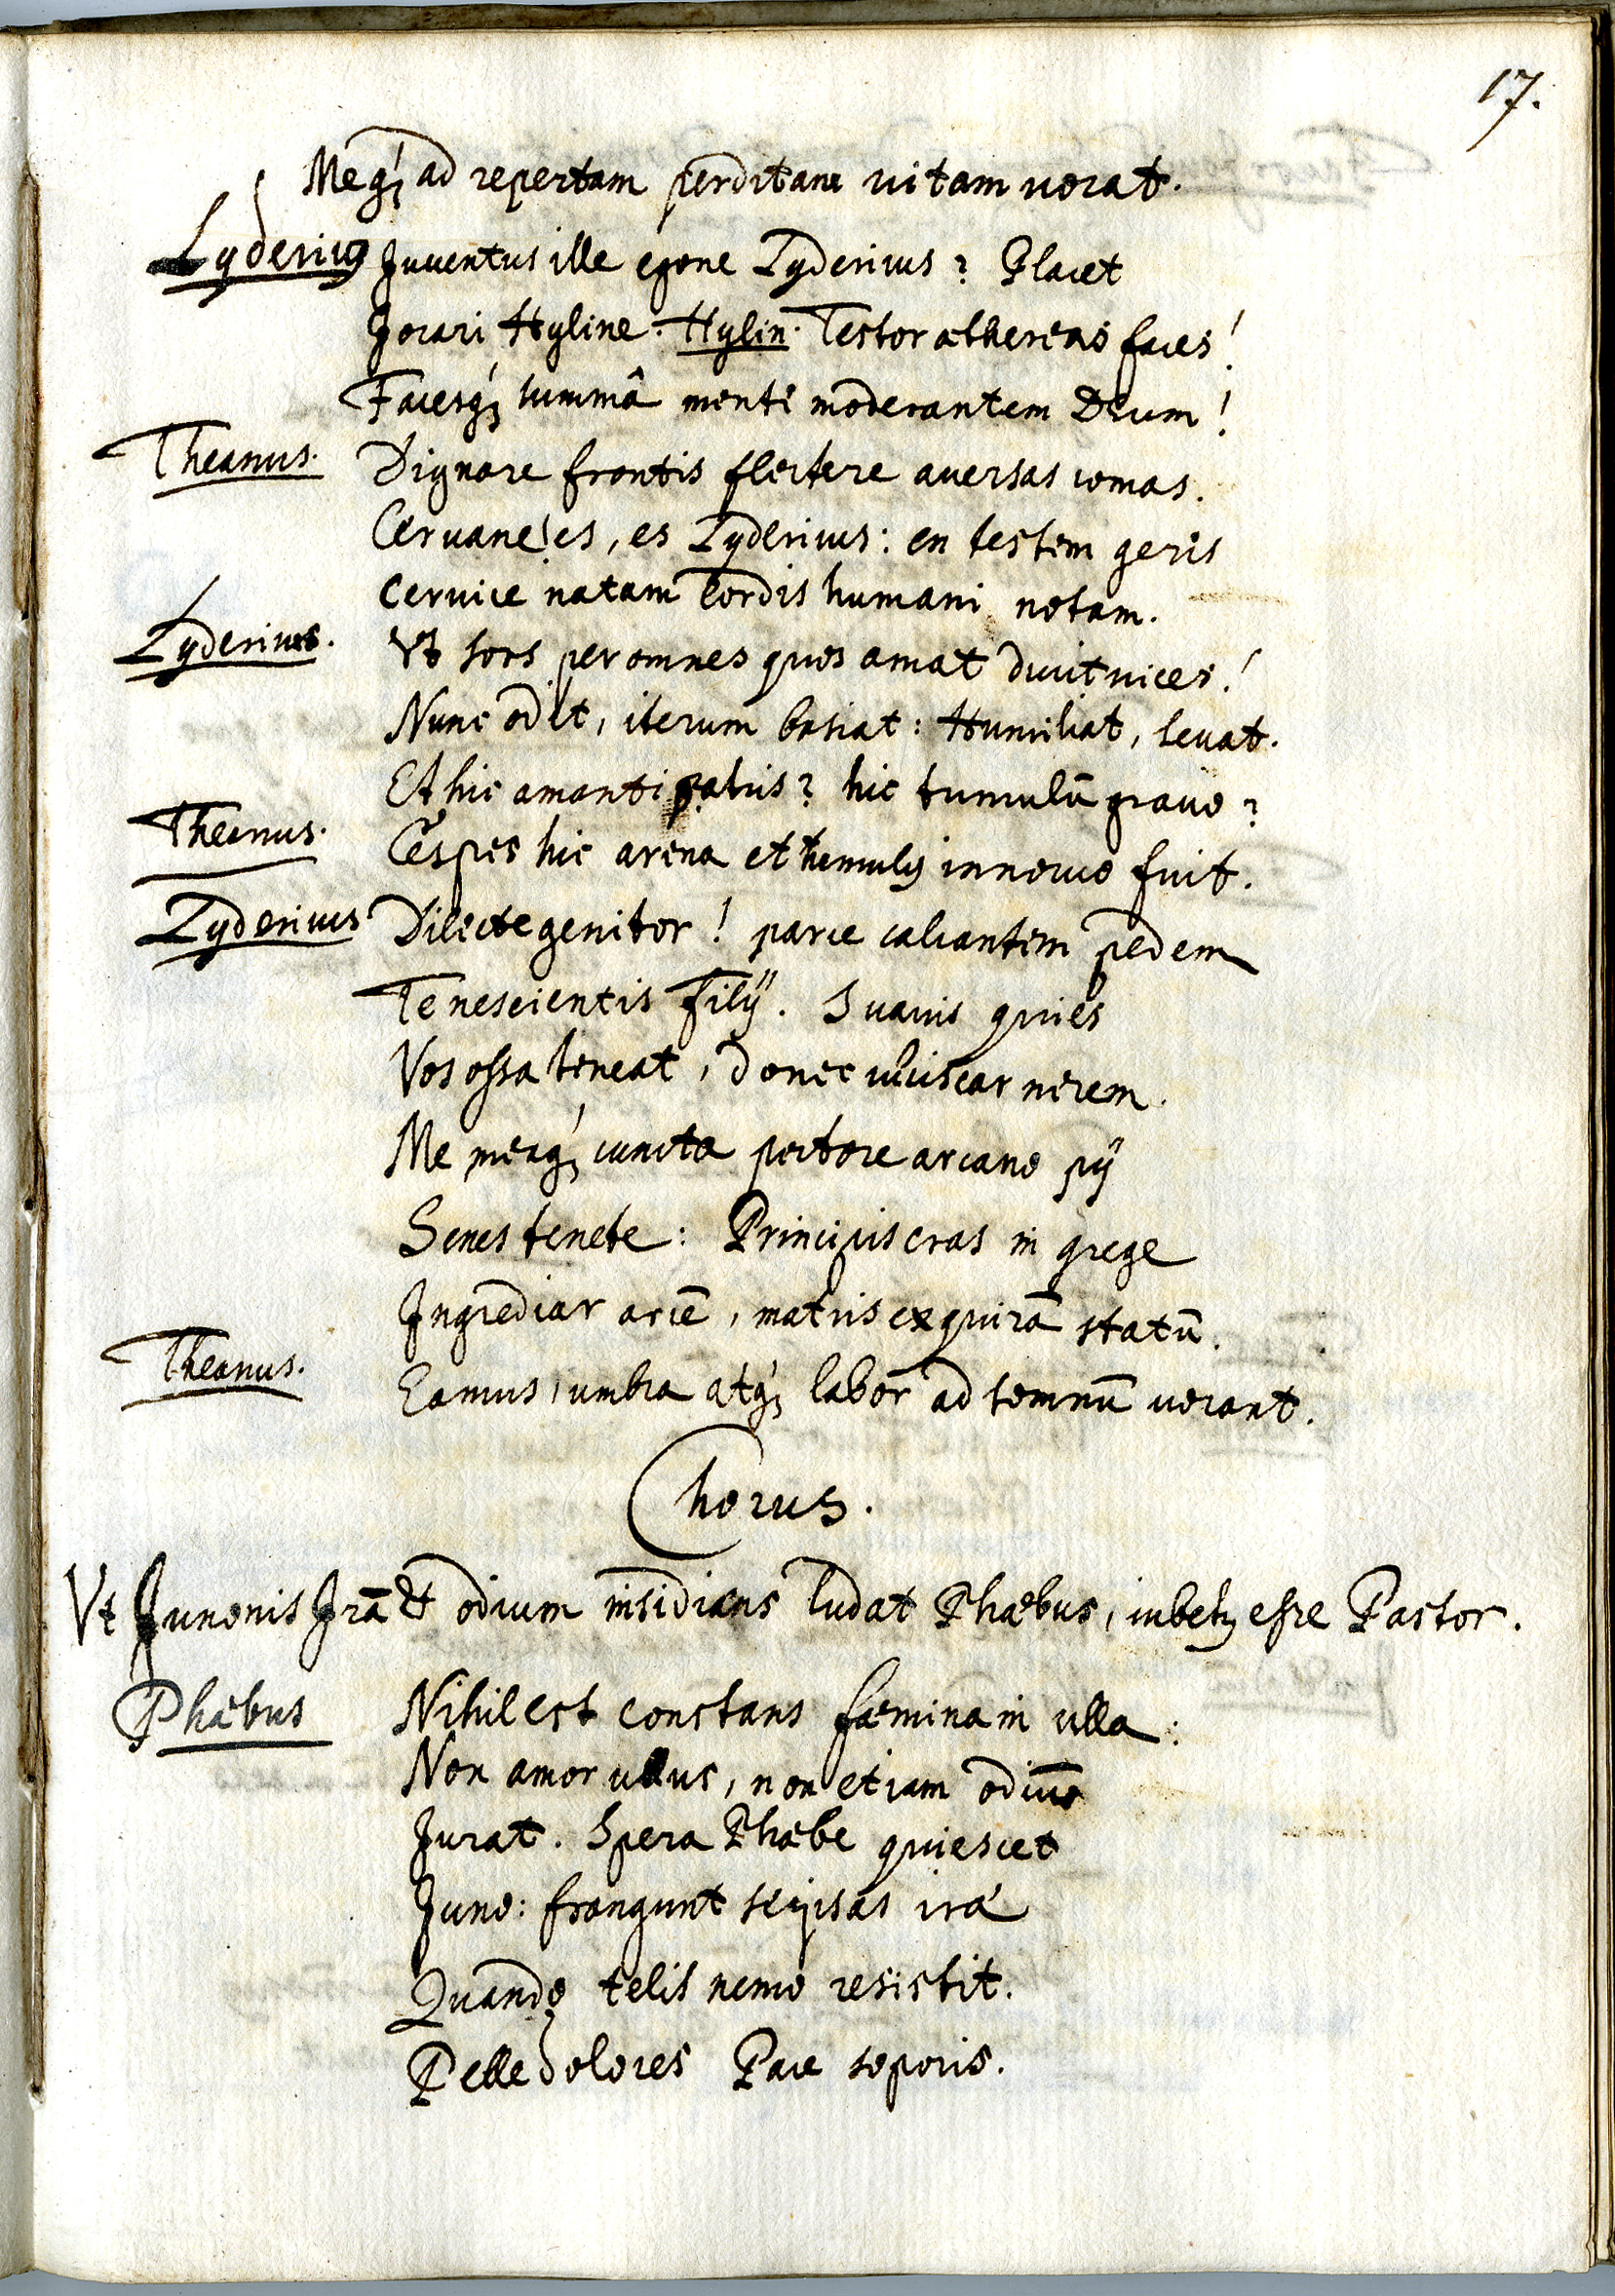 17.
Megꝫ ad repertam perditam vitam vocat.
Lyderius Juventus ille egone Lyderius? Placet
Jocari Hyline. Hylin. Testor æthereas faces!
Facesqꝫ summâ menti moderantem Deum!
Theanus. Dignare frontis flectere aversas comas.
Cervane! es, es Lyderius: en testem geris
Cervice natam cordis humani notam.
Lyderius. Vt sors per omnes quos amat ducit vices!
Nunc odit, iterum basiat: Humiliat, levat.
Et hic amanti patris? hic tumulū gravo?
Theanus. Cespes hic arena et tumulꝫ innocuo fuit.
Lyderius Dilecte genitor! parce calcantem pedem
Te nescientis filÿ. Suavis quies
Vos ossa teneat, donec ulciscar necem.
Me meaqꝫ cuncta pectore arcano pÿ
Senes tenete: Principis cras in grege
Jngrediar arcē, matris exquirā statū.
Theanus. Eamus, umbra atqꝫ labor ad somnū vocant.
Chorus.
Vt Junonis Jrā & odium insidians ludat Phæbus, iubetꝫ esse Pastor.
Phæbus Nihil est constans fæmina in ulla:
Non amor ullus, non etiam odiū
Jurat. Spera Phæbe quiescet
Juno: frangunt seipsas iræ
Quando telis nemo resistit.
Pelle dolores Pace soporis.